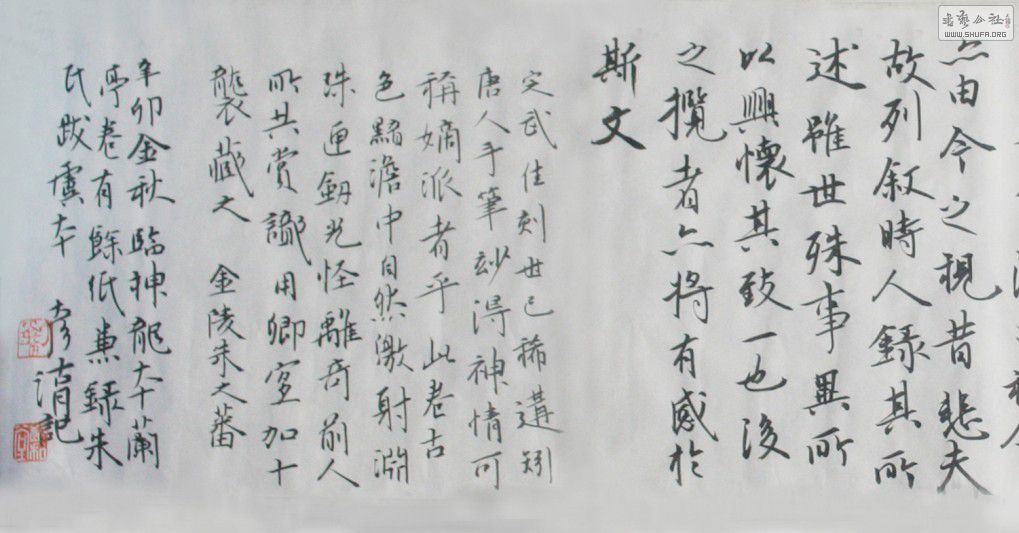 亦由今之視昔悲夫
故列叙時人錄其所
述雖世殊事異所
以興懷其致一也後
之攬者亦將有感於
斯文
定武佳刻世已稀遘矧
唐人手筆玅得神情可
稱嫡派者乎此卷古
色黯澹中自然激射淵
珠匣劒光怪離奇前人
所共賞用卿寔加十
襲藏之 金陵朱之蕃
辛卯金秋臨神龍本蘭
亭卷有餘紙兼錄朱
氏跋虞本 清記
書藝公社
WWW.SHUFA.ORG